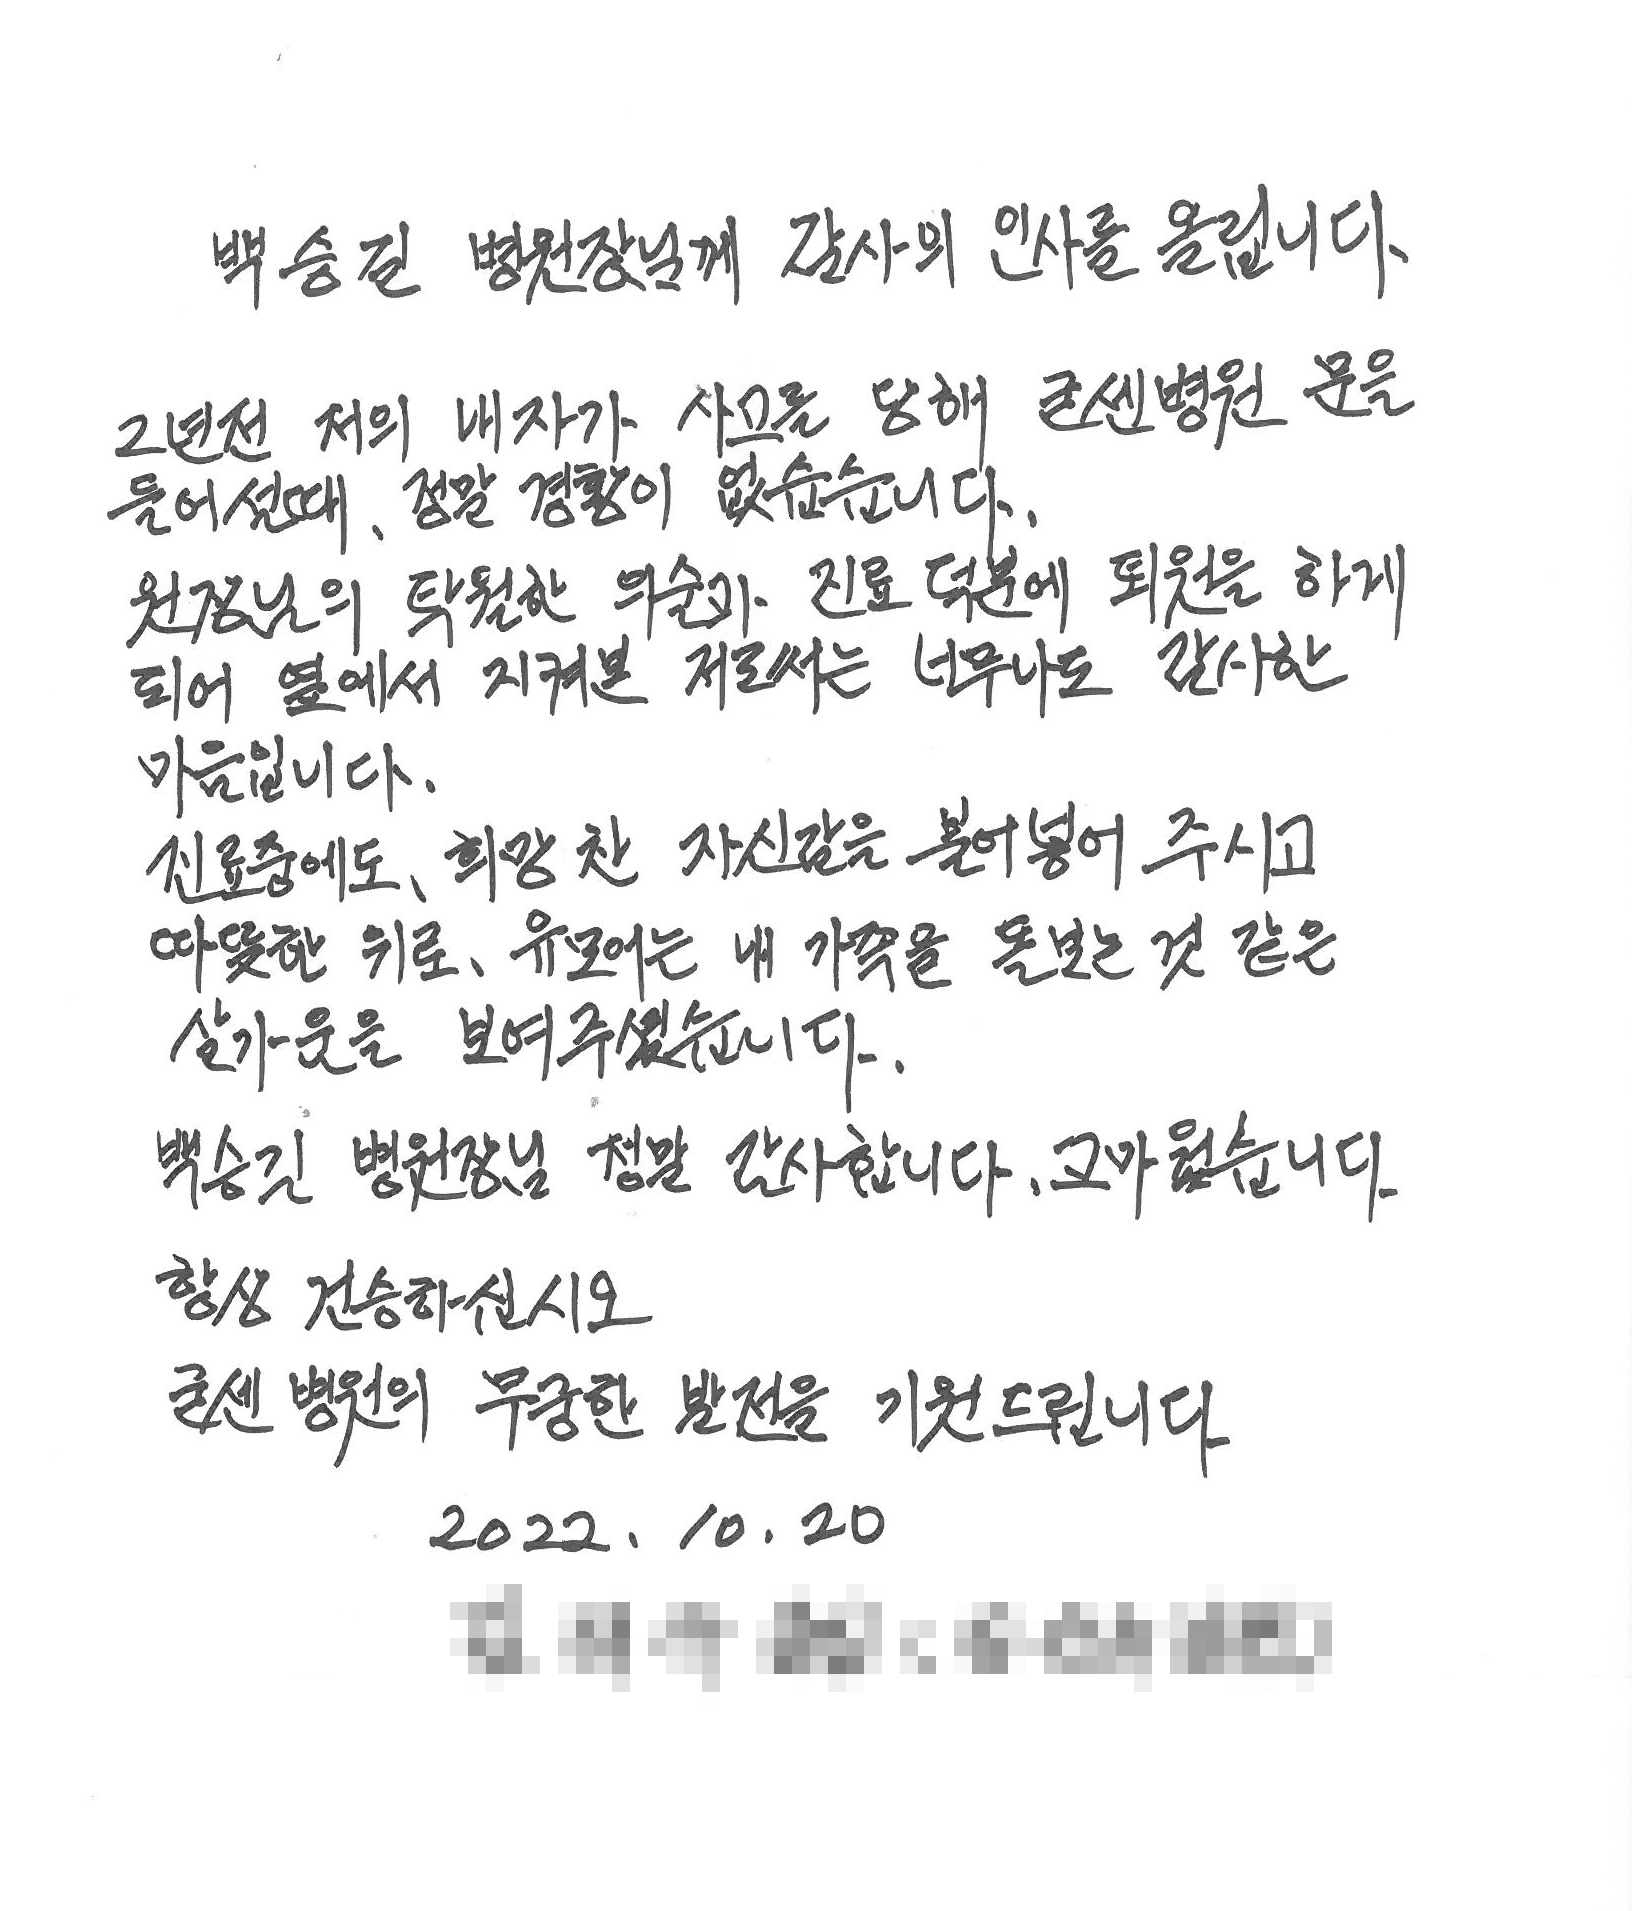 백승길 병원장님께 감사의 인사를 올립니다.
2년전 저의 내자가 사고를 당해 굳센병원 문을
들어설때, 정말 경황이 없습습니다.
원장님의 탁월한 의술과 진료 덕분에 퇴원을 하게
되어 옆에서 지켜본 저로써는 너무나도 감사한
마음입니다.
진료중에도, 희망찬 자신감을 불어넣어 주시고
따뜻한 위로, 유모어는 내 가족을 돌보는 것 같은
살가움을 보여주셨습니다.
백승길 병원장님 정말 감사합니다. 고마웠습니다.
항상 건승하십시오
굳센 병원의 무궁한 발전을 기원드립니다.
2022. 10. 20